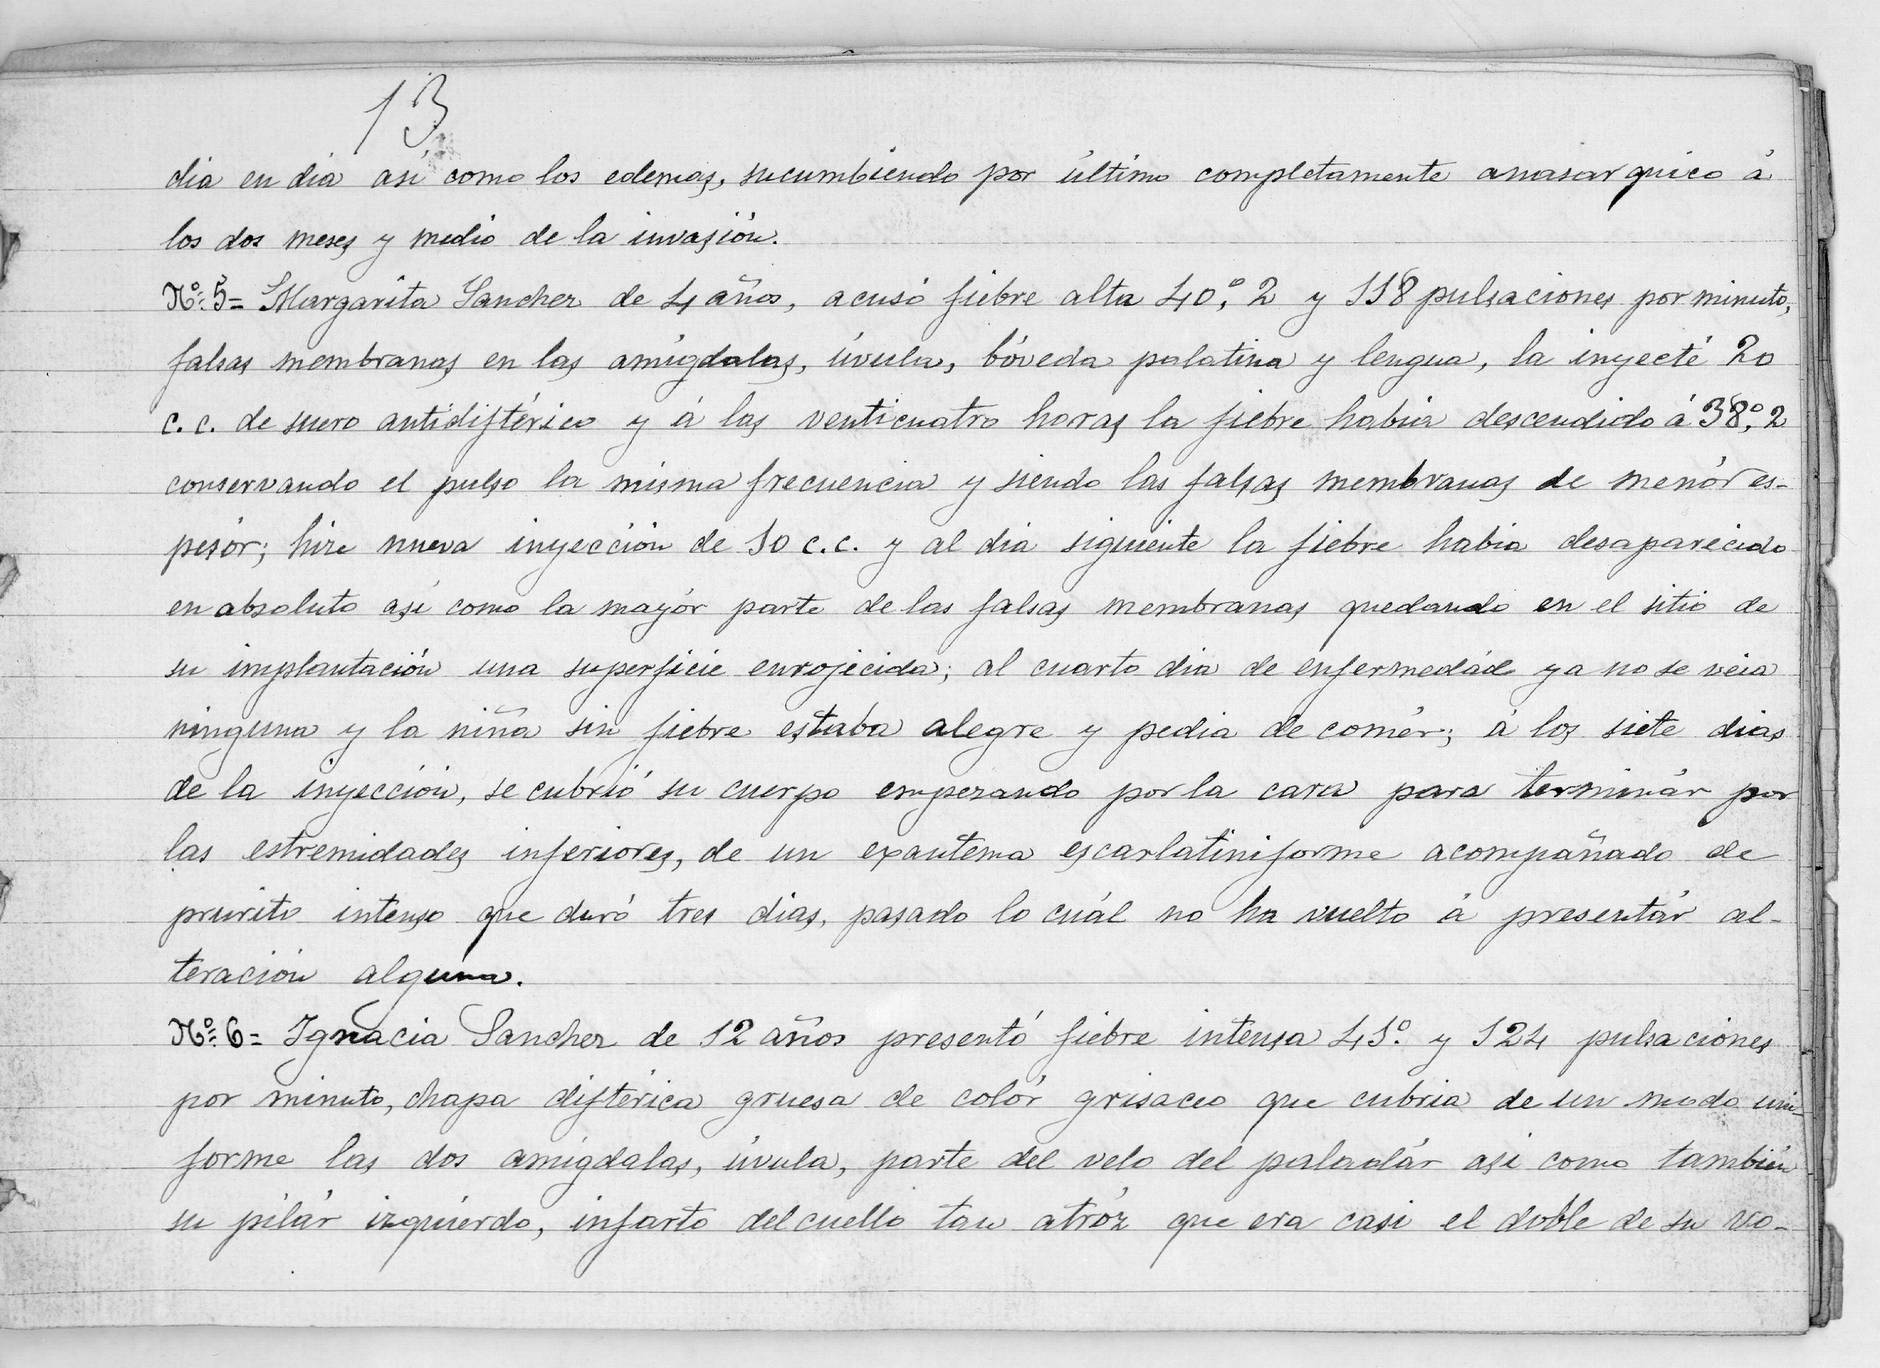 13
dia en dia asi como los edemas, sucumbiendo por último completamente anasarquico á
los dos meses y medio de la invasión.
Nº 5= Margarita Sanchez de 4 años, acusó fiebre alta 40,º 2 y 118 pulsaciones por minuto,
falsas membranas en las amígdalas, úvula, bóveda palatina y lengua, la inyecté 20
c.c. de suero antidiftérico y á las venticuatro horas la fiebre habia descendido á 38,º 2
conservando el pulso la misma frecuencia y siendo las falsas membranas de menór es-
pesór; hize nueva inyección de 10 c.c. y al dia siguiente la fiebre habia desaparecido
en absoluto asi como la mayór parte de las falsas membranas quedando en el sitio de
su implantación una superficie enrojecida; al cuarto dia de enfermedád ya no se veia
ninguna y la niña sin fiebre estaba alegre y pedia de comér; á los siete dias
de la inyección, se cubrió su cuerpo empezando por la cara para terminár por
las estremidades inferiores, de un exantema escarlatiniforme acompañado de
prurito intenso que duró tres dias, pasado lo cuál no ha vuelto á presentár al-
teración alguna.
Nº 6= Ignacia Sanchez de 12 años presentó fiebre intensa 41º. y 124 pulsaciones
por minuto, chapa diftérica gruesa de colór grisaceo que cubria de un modo uni-
forme las dos amígdalas, úvula, parte del velo del paladár asi como también
su pilár izquierdo, infarto del cuello tan atróz que era casi el doble de su vo-